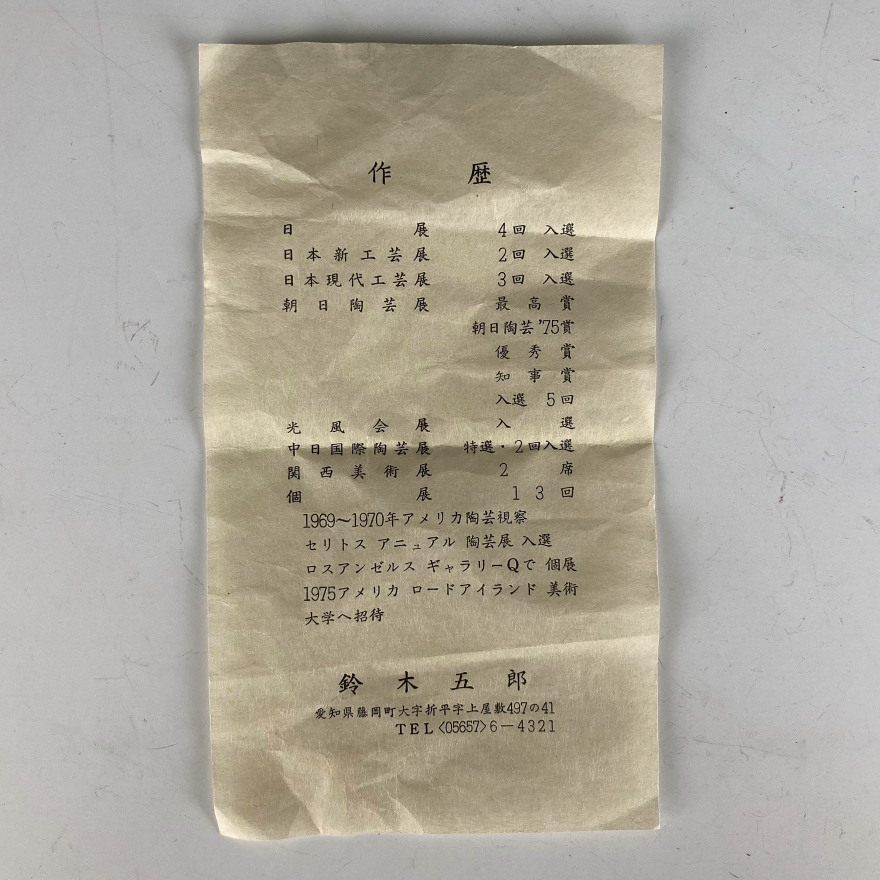 作歴
日展 4回 入選
日本新工芸展 2回 入選
日本現代工芸展 3回 入選
朝日陶芸展 最高賞
朝日陶芸'75賞
優秀賞
知事賞
入選 5回
光風会展 入選
中日国際陶芸展 特選・2回入選
関西美術展 2席
個展 13回
1969〜1970年アメリカ陶芸視察
セリトス アニュアル 陶芸展 入選
ロスアンゼルス ギャラリーQで 個展
1975アメリカ ロードアイランド 美術
大学へ招待
鈴木五郎
愛知県藤岡町大字折平字上屋敷497の41
TEL〈05657〉6－4321